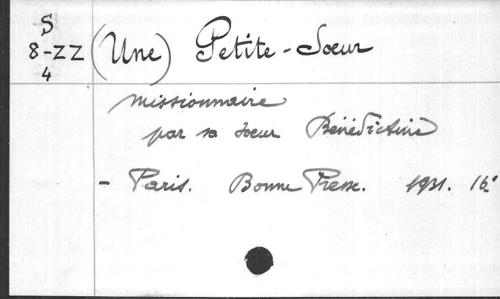 S
8-ZZ
4
(Une) Petite-Soeur
missionnaire
par sa soeur Bénédictine
- Paris. Bonne Presse. 1931. 16°